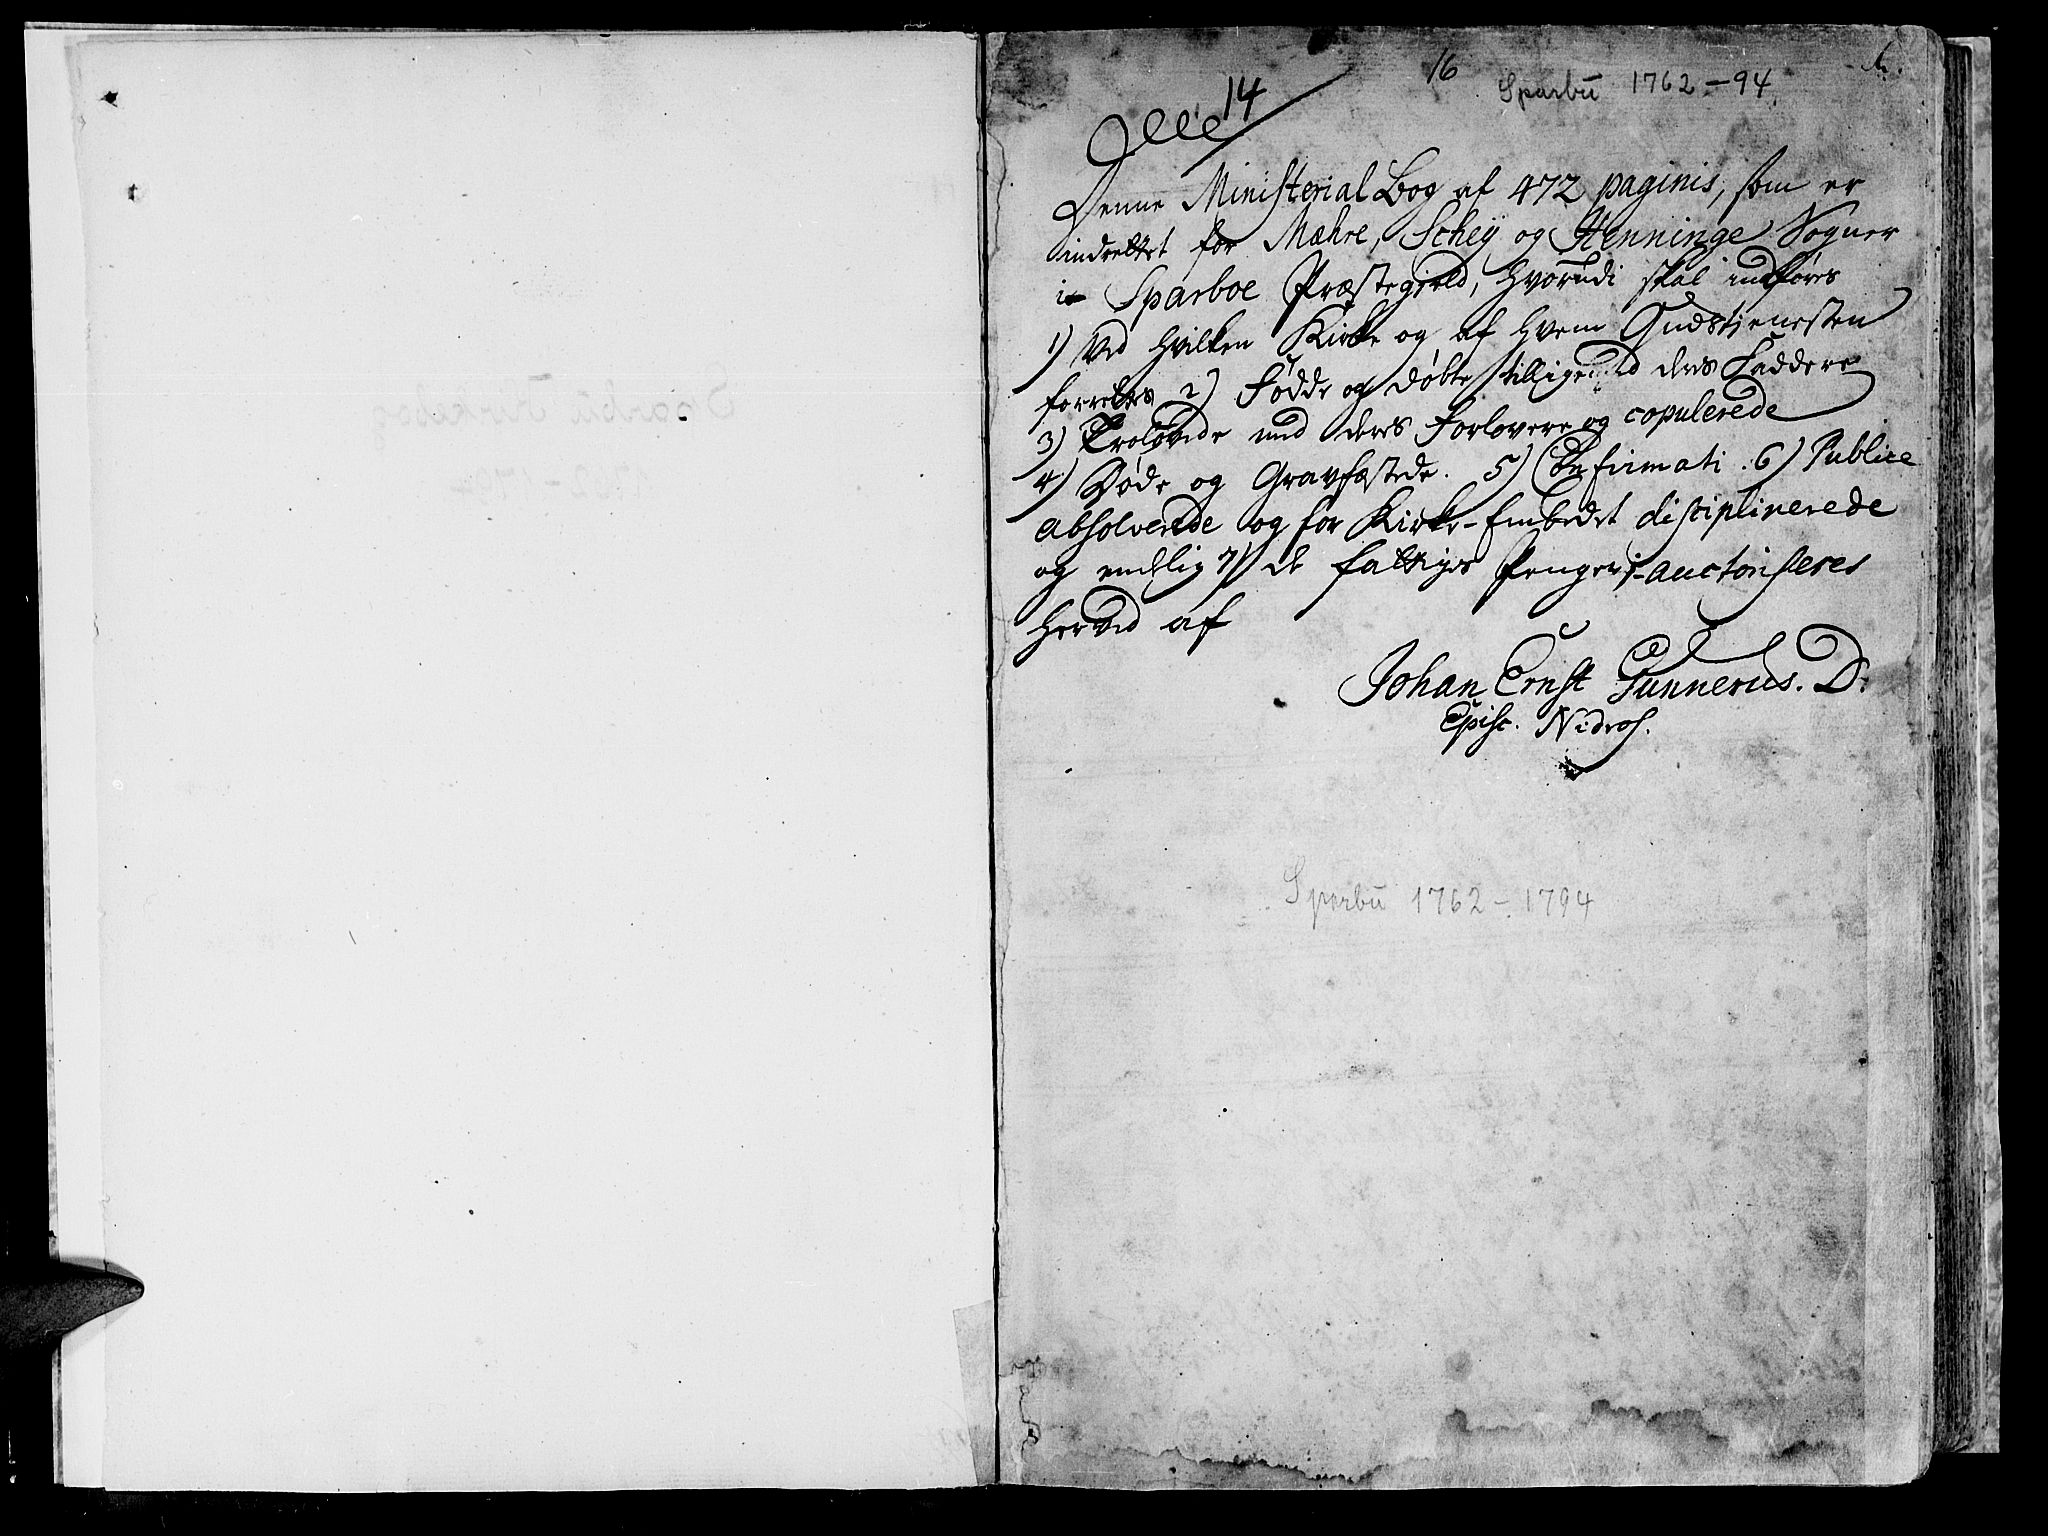 16
Sparbu 1762-94
14
Denne Ministerial Bog af 472 paginis, som er
indrettet for Mæhre, Scheÿ og Henninge Sogner
i Sparboe Præstegield, hvorudi skal indføres
1) Ved hvilken Kirke og af hvem Gudstienesten
forrettes 2) Fødde og døbte tilligemed deres Faddere
3) Troløvede med deres Forlovere og copulerede
4) Døde og Gravfæstede. 5) Confirmati. 6) Publice
absolverede og for Kirke-Embedet disciplinerede
og endelig 7) de fattiges Penge, auctoriseres
herved af
Johan Ernst Gunnerus. D.
Episc. Nidros.
Sparbu 1762-1794